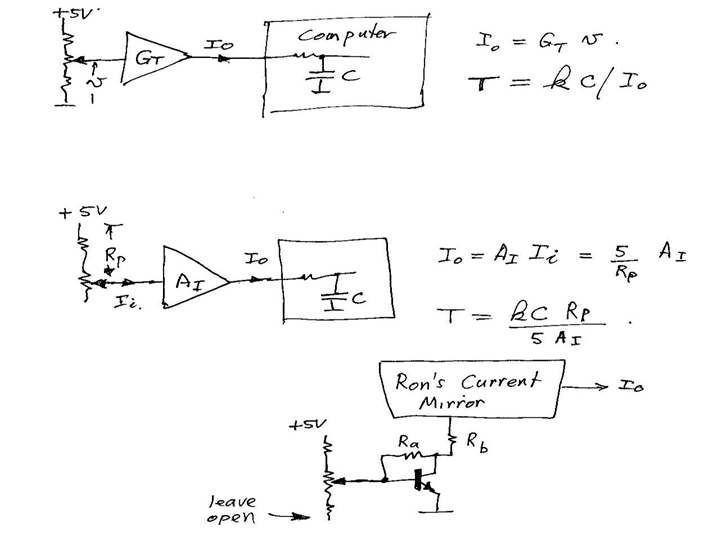 +5V
v
G_T
I_o
Computer
C
I_o = G_T v.
T = k C / I_o
+5V
R_P
I_i
A_I
I_o
C
I_o = A_I I_i = 5/R_P A_I
T = kC R_P / 5 A_I .
Ron's Current
Mirror
I_o
+5V
Ra
R_b
leave
open